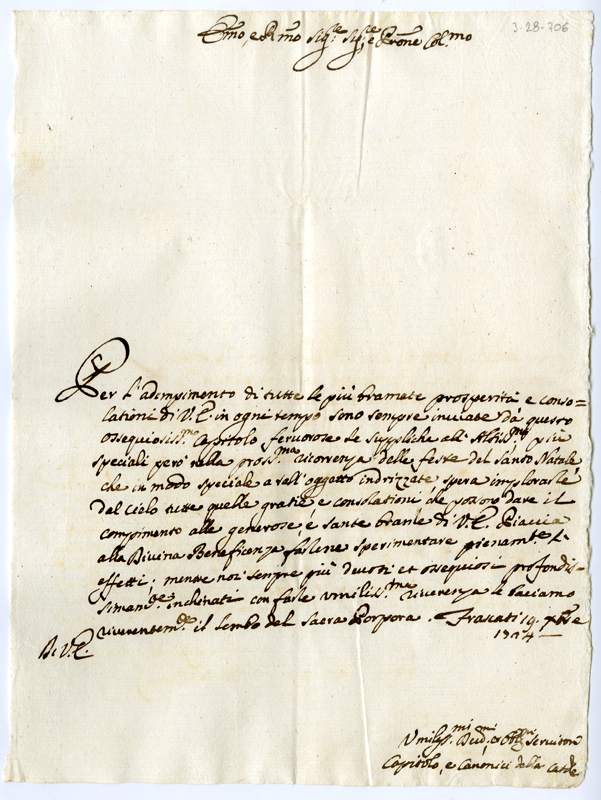 3-28-706
Emo, e Rmo Sig.re Sig.re e Prone Col.mo
Per l'adempimento di tutte le più bramate prosperità e conso=
lationi di V.E. in ogni tempo sono sempre inviate da questo
ossequiosiss.mo Capitolo fervorose le suppliche all'Altiss.mo più
speciali però nella pross.ma ricorrenza delle feste del Santo Natale
che in modo speciale a tall'oggetto indrizzate spera implorarle
dal Cielo tutte quelle gratie e consolationi che possono dare il
compimento alle generose, e sante brame di V.E. Piaccia
alla Divina Beneficenza farlene sperimentare pienam.te gl'
effetti; mentre noi sempre più devoti et ossequiosi profondis=
simam.te inchinati con farle umiliss.ma riverenza le baciamo
riverentem.te il lembo del Sacra Porpora. Frascati 19. Xbre
17 4
Di V.E.
Umiliss.mi Dev.mi et Obb.mi Servitori
Capitolo, e Canonici della Catde